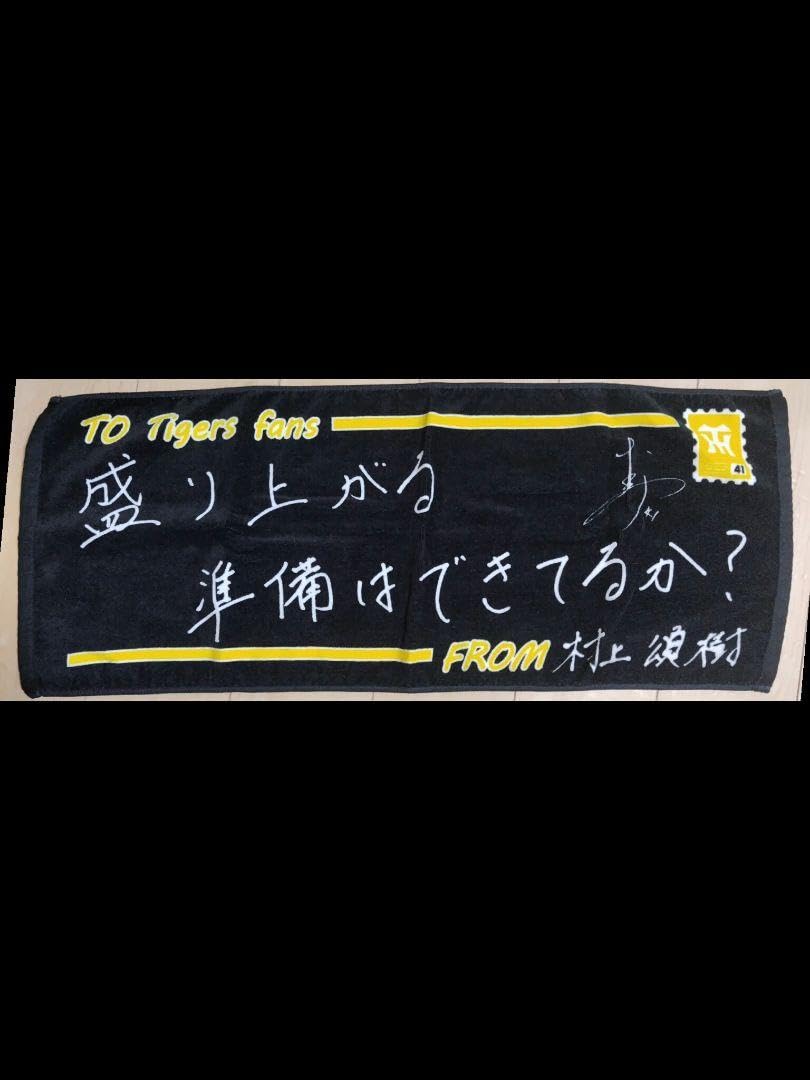 TO Tigers fans
41
盛り上がる
準備はできてるか?
FROM 村上 頌樹